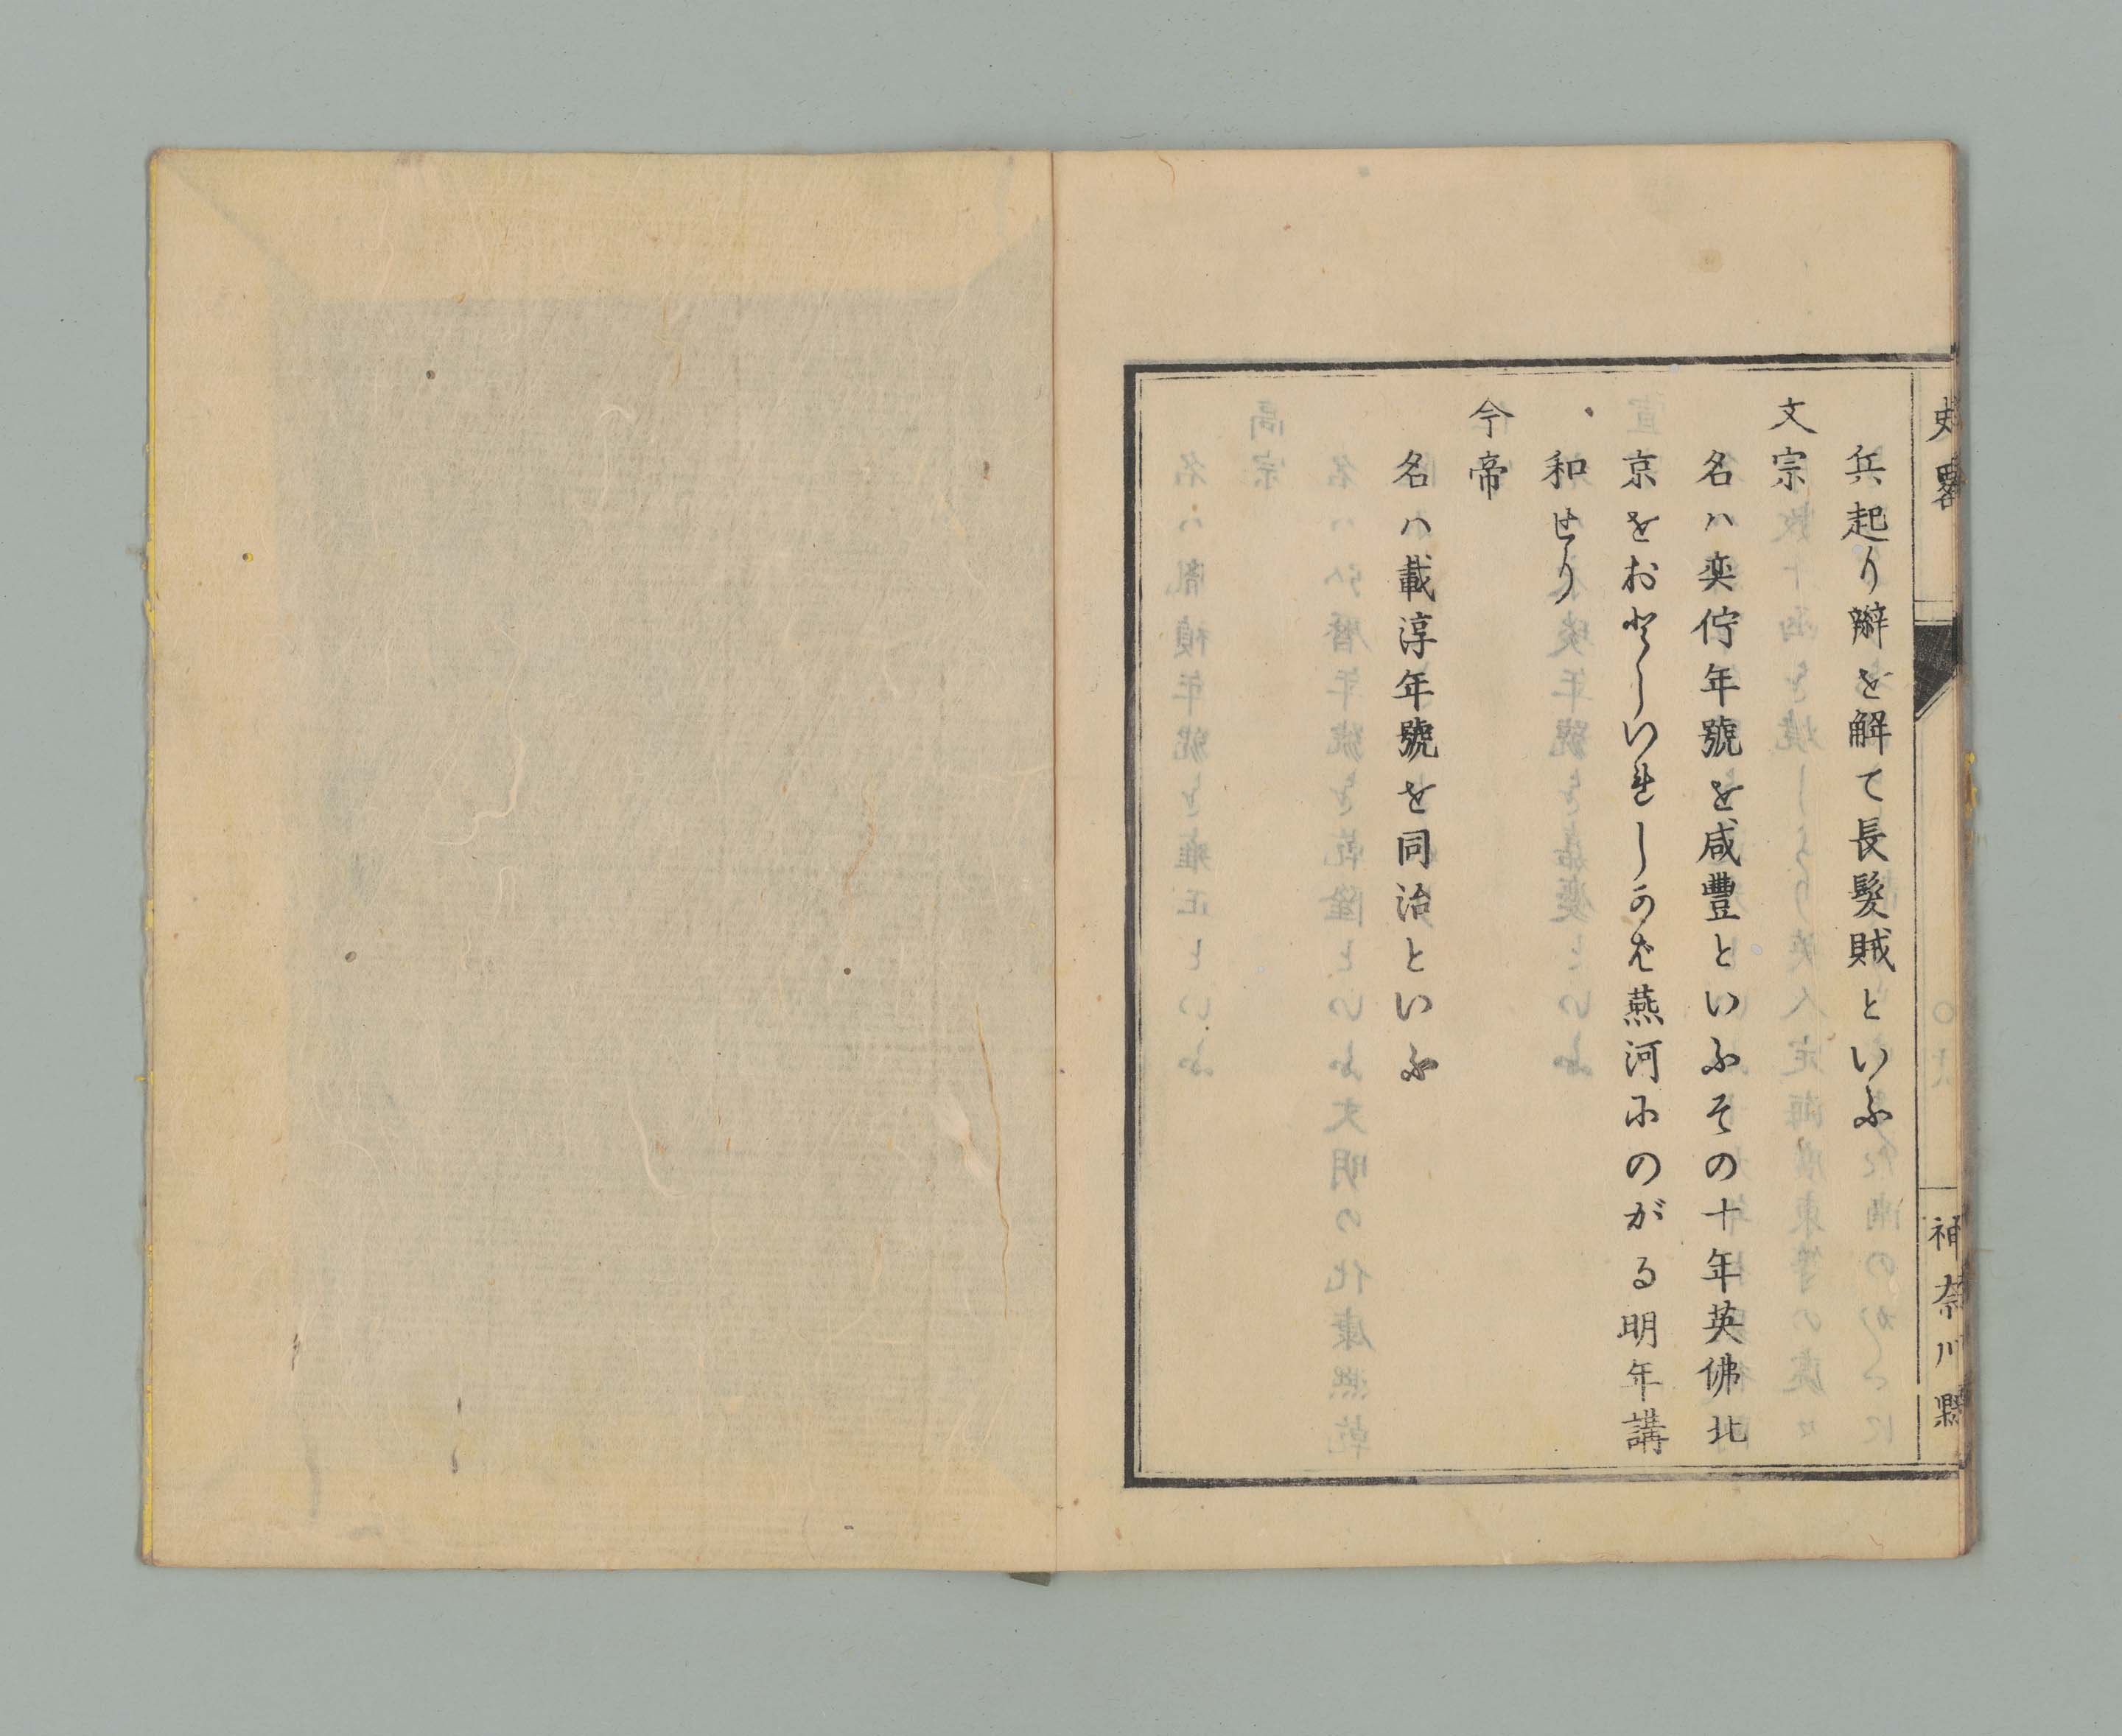 史畧
神奈川縣
兵起り辮を解て長髮賊といふ
文宗
名ハ奕佇年號を咸豐といふその十年英佛北
京をおとしいれしかば燕河にのがる明年講
和せり
今帝
名ハ載淳年號を同治といふ